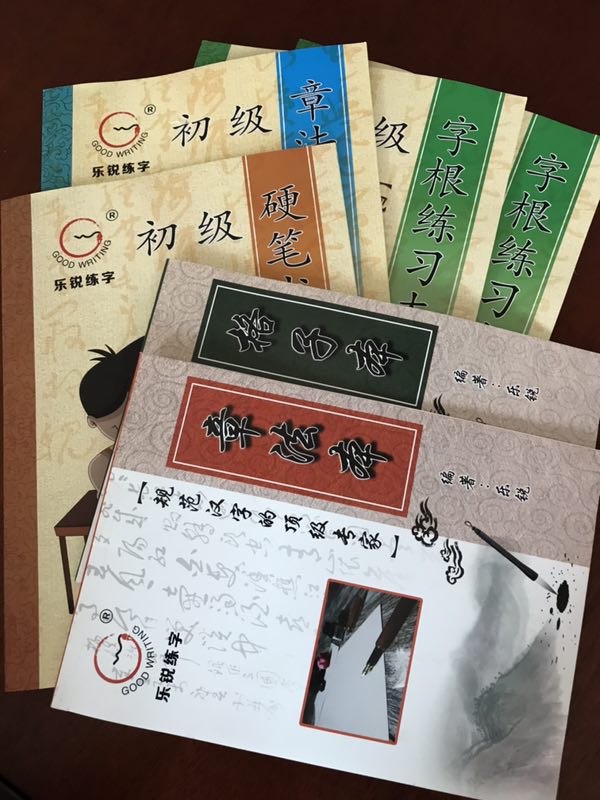 ®
GOOD WRITING
乐锐练字
初级
章法
级
字根练习
字根练习
®
GOOD WRITING
乐锐练字
初级
硬笔
格子本
编著：乐锐
章法本
编著：乐锐
【规范汉字的顶级专家】
®
GOOD WRITING
乐锐练字